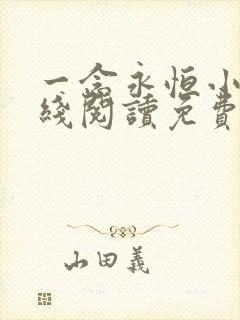 一念永恒小
綫閱讀免費
山田義